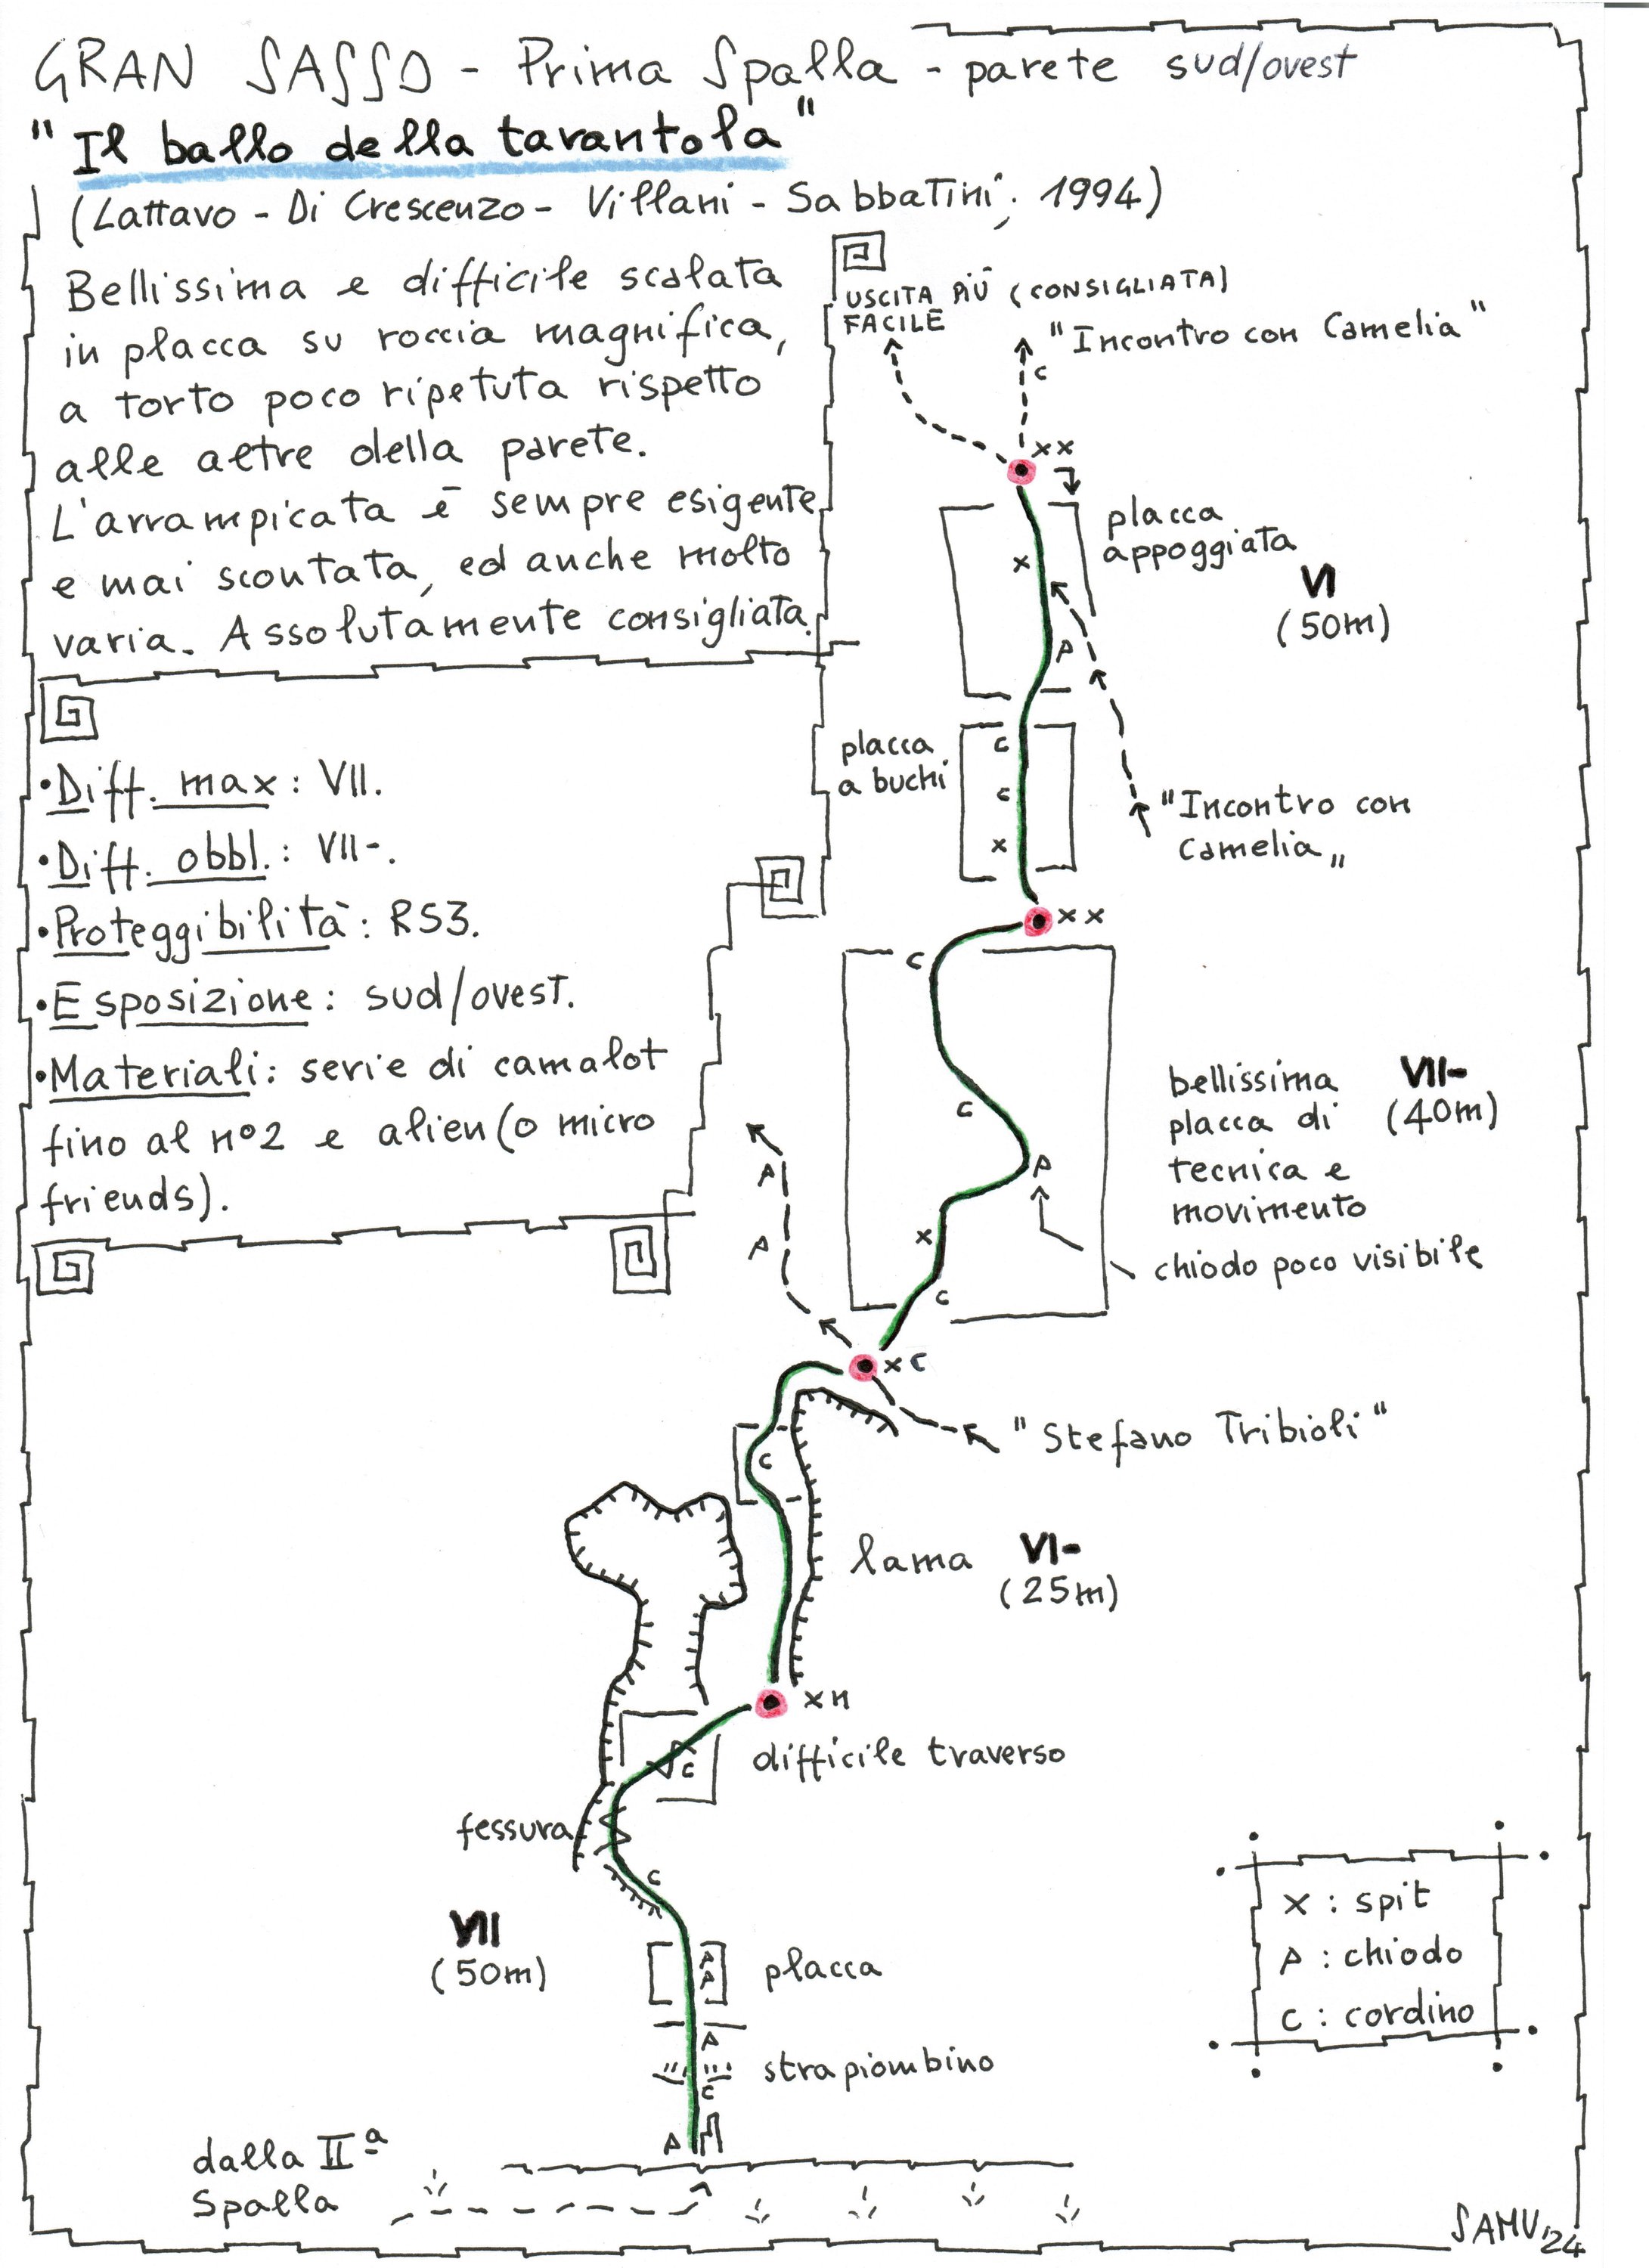 GRAN SASSO - Prima Spalla - parete sud/ovest
"Il ballo della tarantola"
(Lattavo - Di Crescenzo - Villani - Sabbatini, 1994)
Bellissima e difficile scalata
in placca su roccia magnifica,
a torto poco ripetuta rispetto
alle altre della parete.
L'arrampicata è sempre esigente
e mai scontata, ed anche molto
varia. Assolutamente consigliata.
•Diff. max: VII.
•Diff. obbl.: VII-.
•Proteggibilità: RS3.
•Esposizione: sud/ovest.
•Materiali: serie di camalot
fino al n°2 e alien (o micro
friends).
USCITA PIÙ (CONSIGLIATA)
FACILE
"Incontro con Camelia"
C
XX
placca
appoggiata
X
VI
(50m)
P
placca
a buchi
C
C
X
"Incontro con
Camelia"
XX
C
bellissima
placca di
tecnica e
movimento
VII-
(40m)
C
P
X
chiodo poco visibile
C
P
P
XC
"Stefano Tribioli"
C
lama
VI-
(25m)
XN
C
difficile traverso
fessura
C
VII
(50m)
P
P
placca
P
strapiombino
C
P
dalla IIª
Spalla
X : spit
P : chiodo
C : cordino
SAMU '24